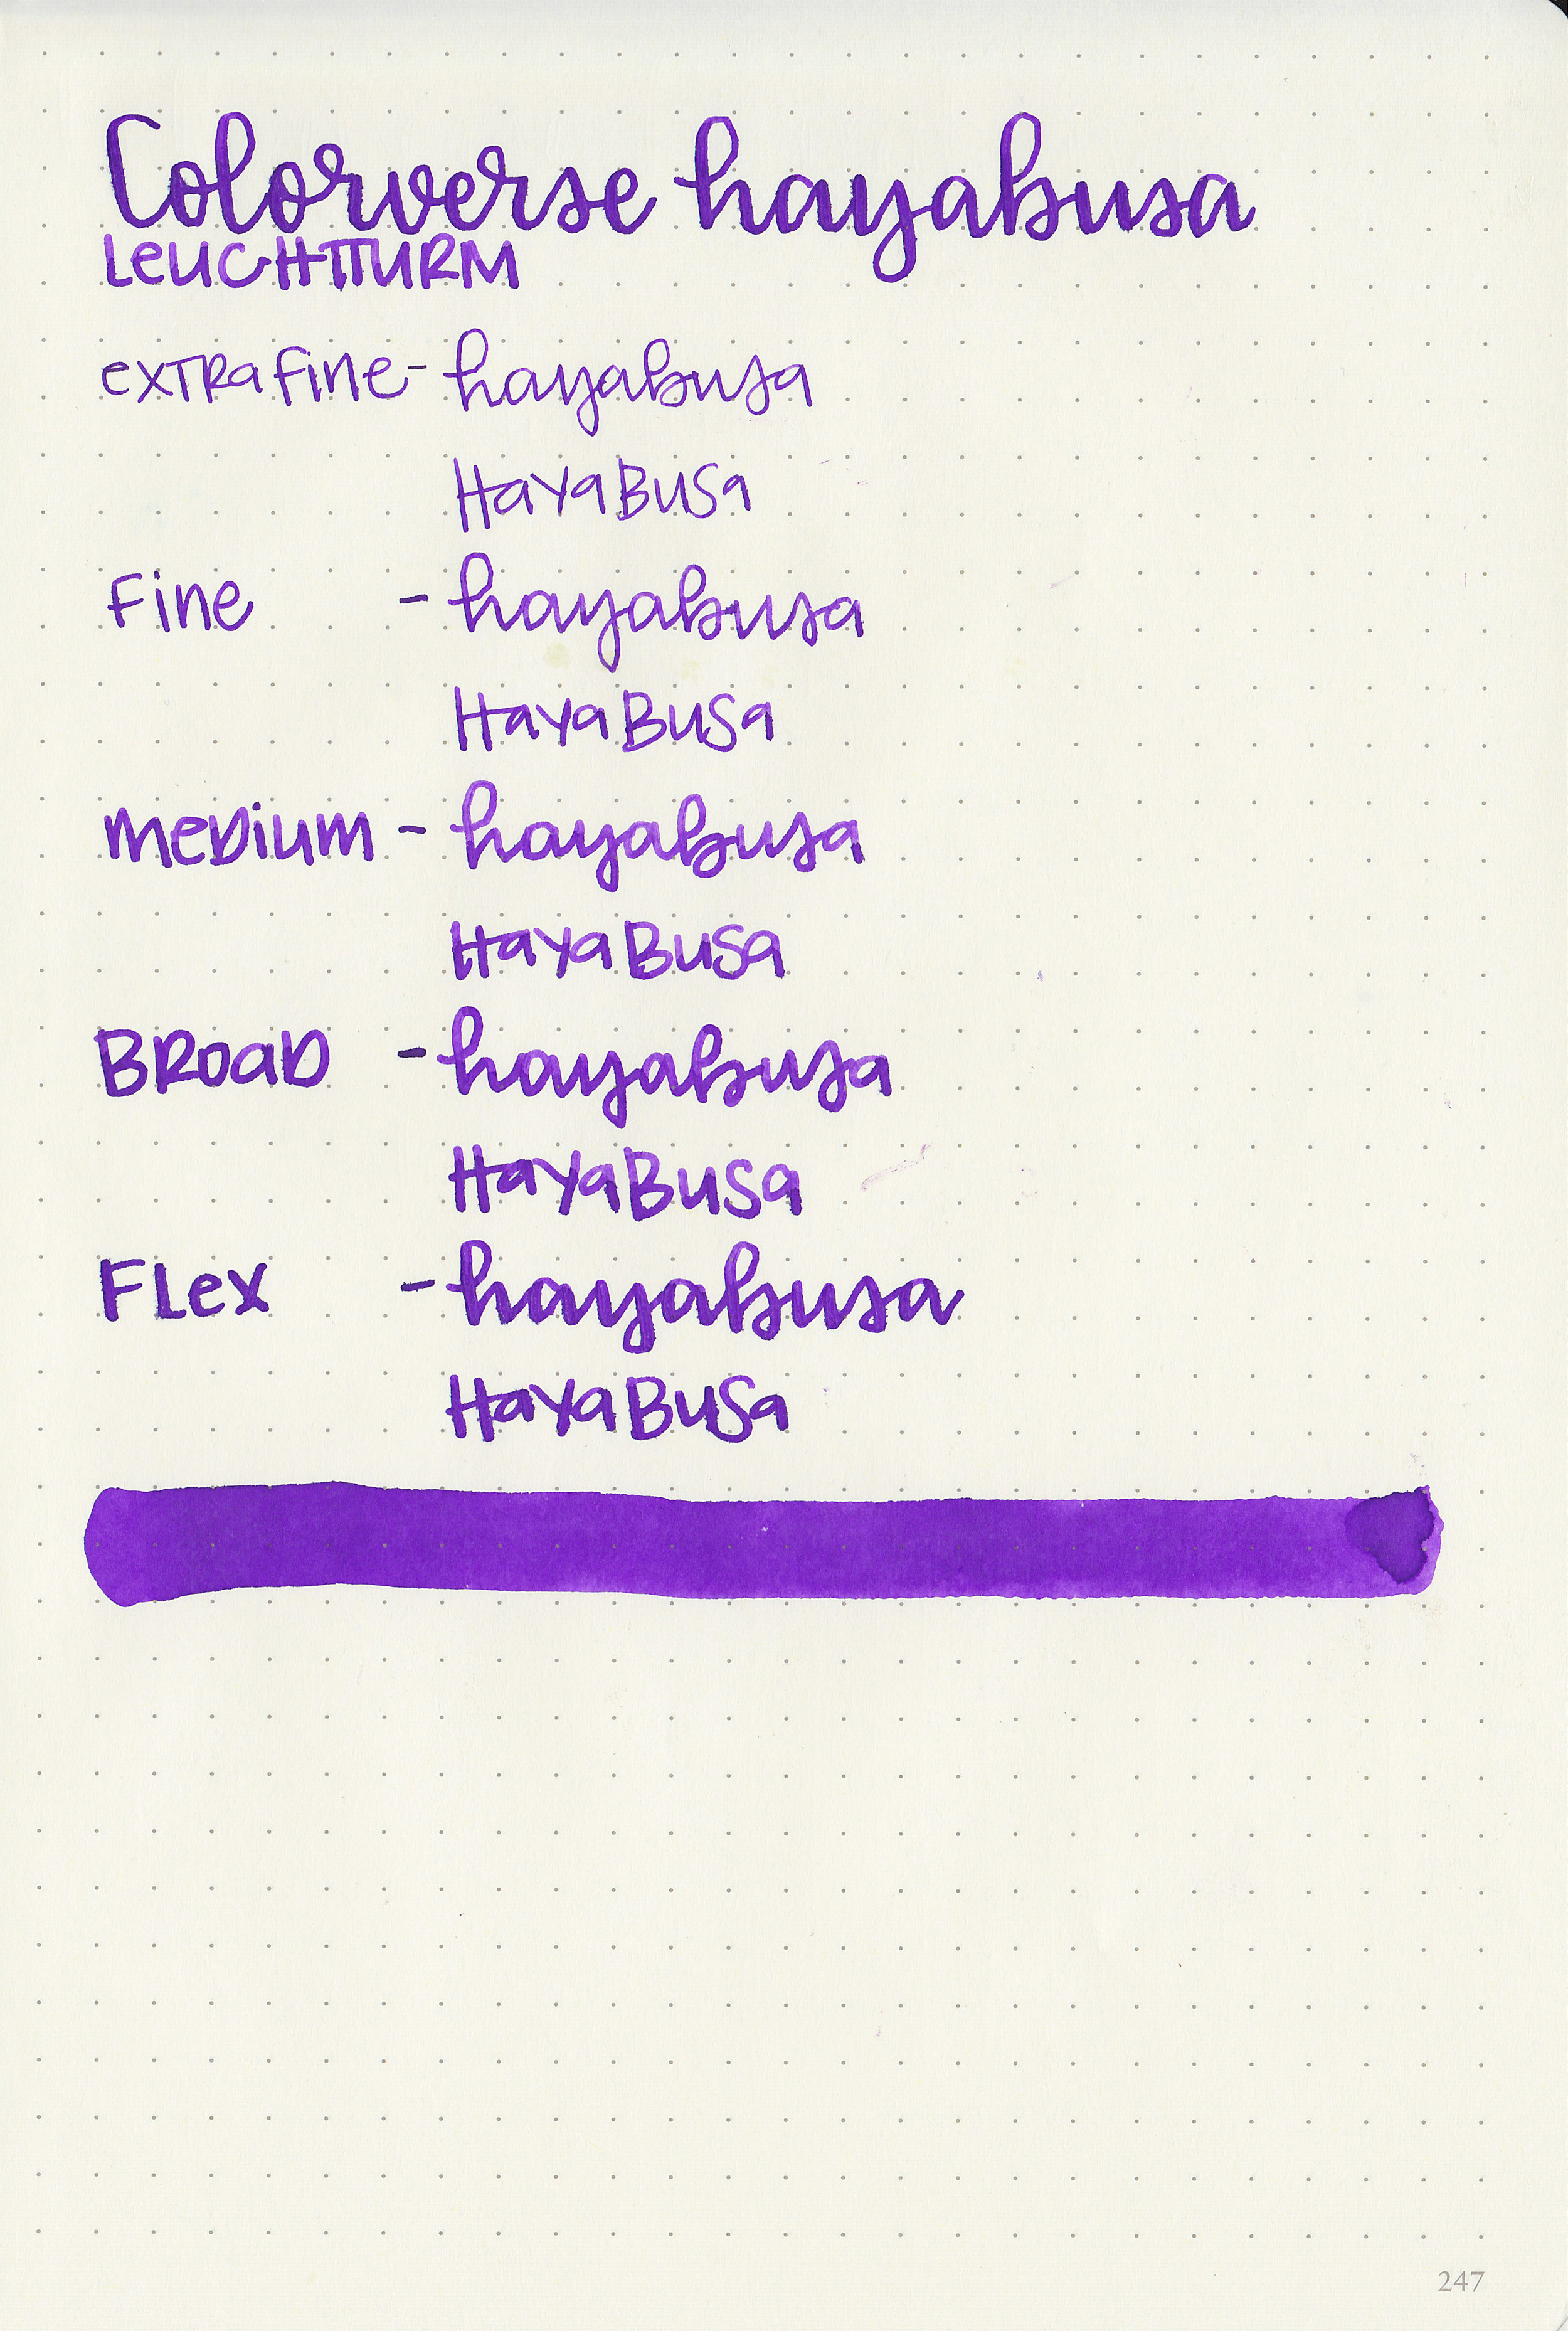 Colorverse hayabusa
LeUCHTTURM
exTRa Fine - hayabusa
HaYaBUSa
Fine - hayabusa
HaYaBUSa
MeDiUM - hayabusa
HaYaBUSa
BROaD - hayabusa
HaYaBUSa
FLeX - hayabusa
HaYaBUSa
247